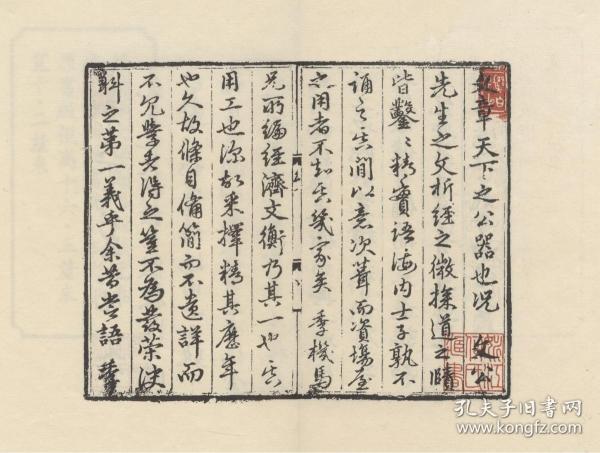 文章天下之公器也况 文公
先生之文析經之微探道之賾
皆鑿〻精實語海内士子孰不
誦之其間以意次葺而資場屋
之用者不知其幾家矣 季機馬
兄所編經濟文衡乃其一也其
用工也深故采擇精其歷年
也久故條目備簡而不遺詳而
不冗學者得之豈不爲發策決
科之第一義乎余昔嘗語
孔夫子旧书网
www.kongfz.com